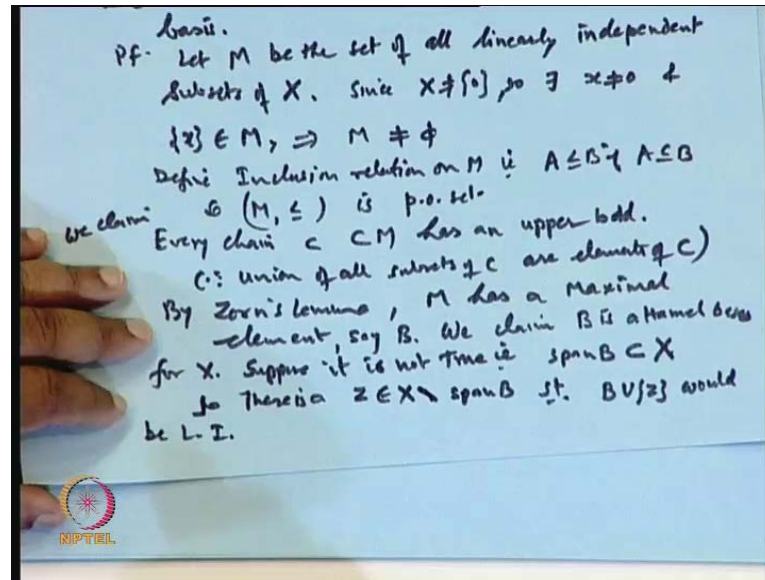 basis.
Pf. Let M be the set of all linearly independent
Subsets of X. Since X ≠ {0}, so ∃ x ≠ 0 &
{x} ∈ M, ⇒ M ≠ φ
Define Inclusion relation on M ie A ≤ B if A ⊆ B
so (M, ≤) is p.o. set.
we claim Every chain C ⊂ M has an upper bdd.
(∵ union of all subsets of C are elements of C)
By Zorn's lemma, M has a Maximal
element, say B. We claim B is a Hamel basis
for X. Suppose it is not true ie span B ⊂ X
so There is a Z ∈ X \ span B st. B ∪ {z} would
be L.I.
NPTEL